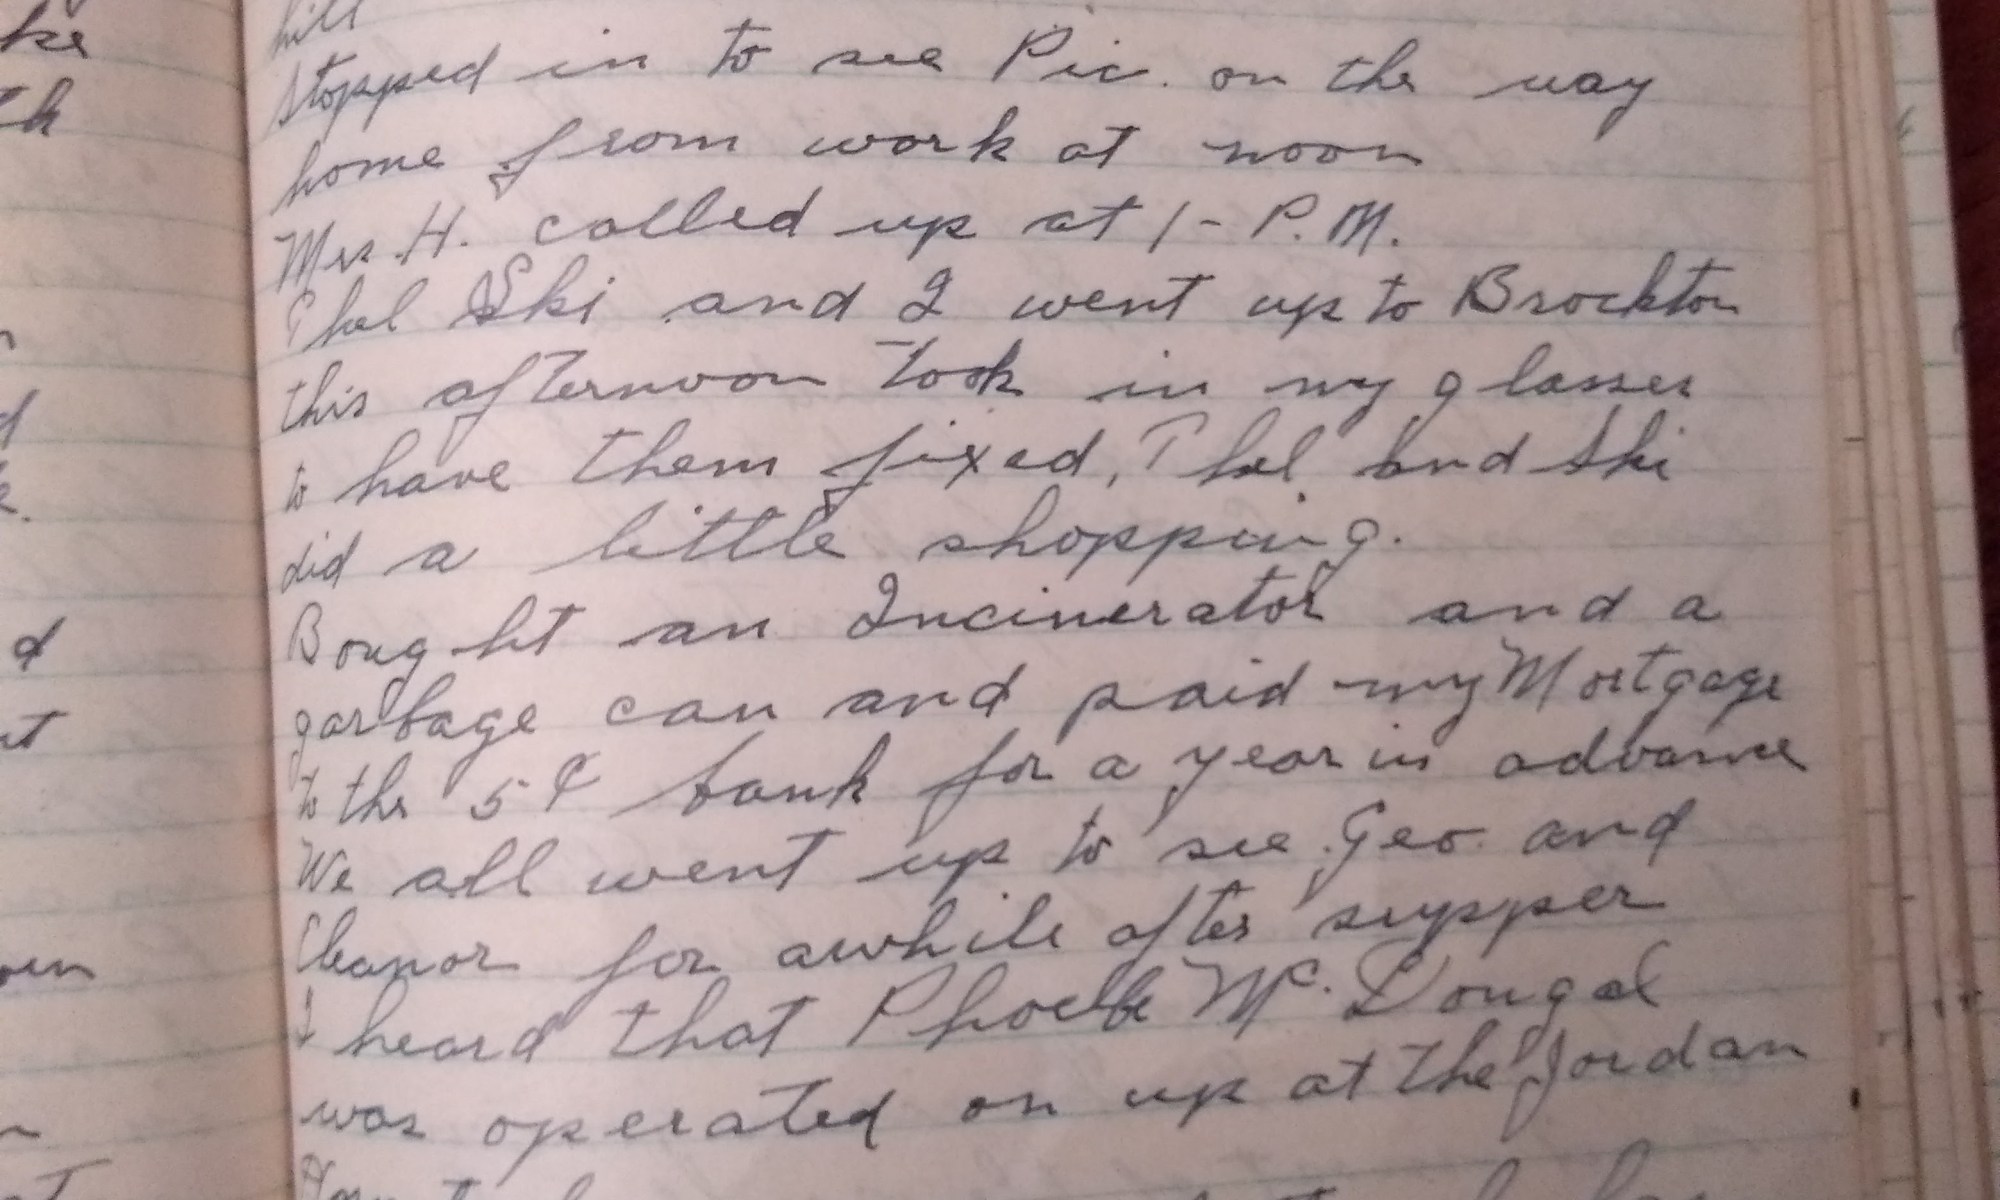 hill
stopped in to see Pic. on the way
home from work at noon
Mrs. H. called up at 1 - P.M.
Thel Ski and I went up to Brockton
this afternoon took in my glasses
to have them fixed, Thel and Ski
did a little shopping.
Bought an Incinerator and a
garbage can and paid my Mortgage
to the 5¢ bank for a year in advance
We all went up to see Geo. and
Eleanor for awhile after supper
I heard that Phoebe Mc. Dougal
was operated on up at the Jordan